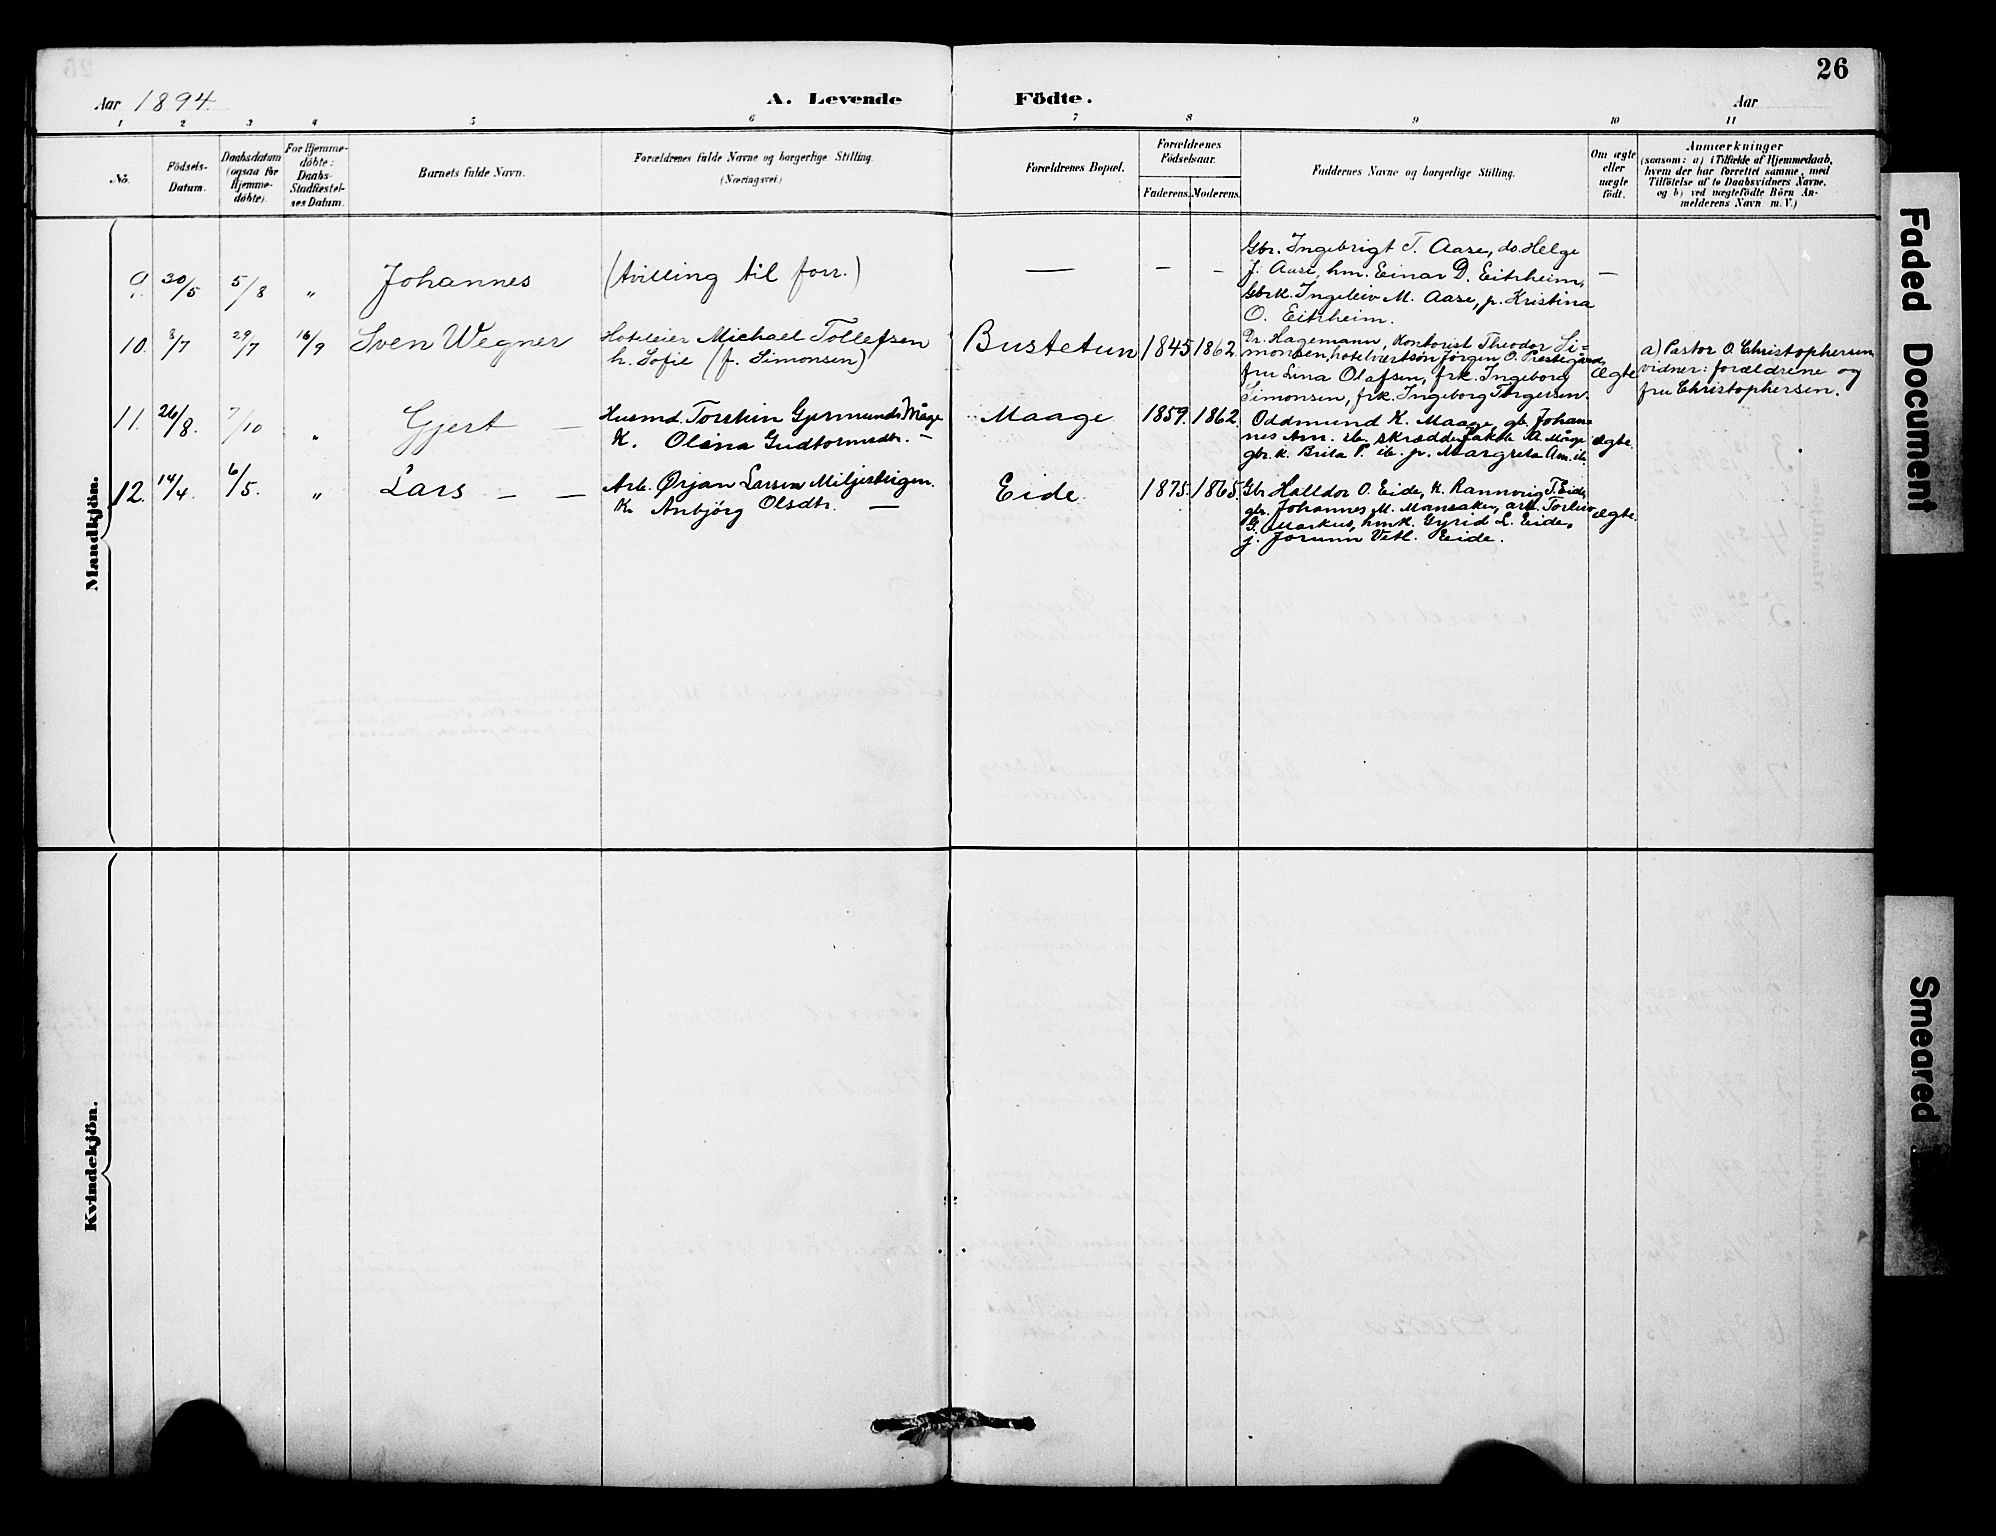 26
Aar 1894.
A. Levende Födte.
Aar
1 2 3 4 5 6 7 8 9 10 11
No.
Födsels-
Datum.
Daabsdatum
(ogsaa for
Hjemme-
döbte).
For Hjemme-
döbte:
Daabs-
Stadfæstel-
ses Datum.
Barnets fulde Navn.
Forældrenes fulde Navne og borgerlige Stilling.
(Næringsvei.)
Forældrenes Bopæl.
Forældrenes
Födselsaar.
Faderens. Moderens.
Faddernes Navne og borgerlige Stilling.
Om ægte
eller
uægte
födt.
Anmærkninger
(saasom: a) i Tilfælde af Hjemmedaab,
hvem der har forrettet samme, med
Tilföielse af to Daabsvidners Navne,
og b) ved uægtefödte Börn An-
melderens Navn m. V.)
Mandkjön.
9. 30/5 5/8 " Johannes (tvilling til forr.) — — — —
Gbr. Ingebrigt T. Aase, do. Helge
J. Aase, hm. Einar D. Eitrheim,
Gbrk. Ingeleiv M. Aase, p. Kristina
O. Eitrheim.
10. 3/7 29/7 16/9 Sven Wegner
Hoteleier Michael Tollefsen
h. Sofie (f. Simonsen)
Bustetun 1845 1862
Dr. Hagemann, Kontorist Theodor Si-
monsen, hotelværtsön Jörgen O. Præstegård,
fru Lina Olafsen, frk. Ingeborg
Simonsen, frk. Ingeborg Torgersen.
Ægte
a) Pastor O. Christophersen
vidner: forældrene og
fru Christophersen.
11. 26/8. 7/10 " Gjert —
Husmd. Torstein Gjermunds. Måge
K. Olina Gudtormsdtr. —
Maage 1859. 1862
Oddmund K. Maage, gb. Johan-
nes Am. ib. skrædder Jakob A. Måge
gbr. k. Brita P. ib. p. Margreta Am. ib.
ægte.
12. 14/4 6/5. " Lars — —
Arb. Ørjan Larsen Miljesteigen.
K. Anbjørg Olsdtr. —
Eide 1875. 1865.
Gbr. Halldor O. Eide, K. Rannveig T. Eide,
gbr. Johannes M. Mansaker, arb. Torleiv
G. Markus, hmk. Gyrid L. Eide,
j. Jorunn Vetl. Eide.
ægte.
Kvindekjön.
Faded Document
Smeared